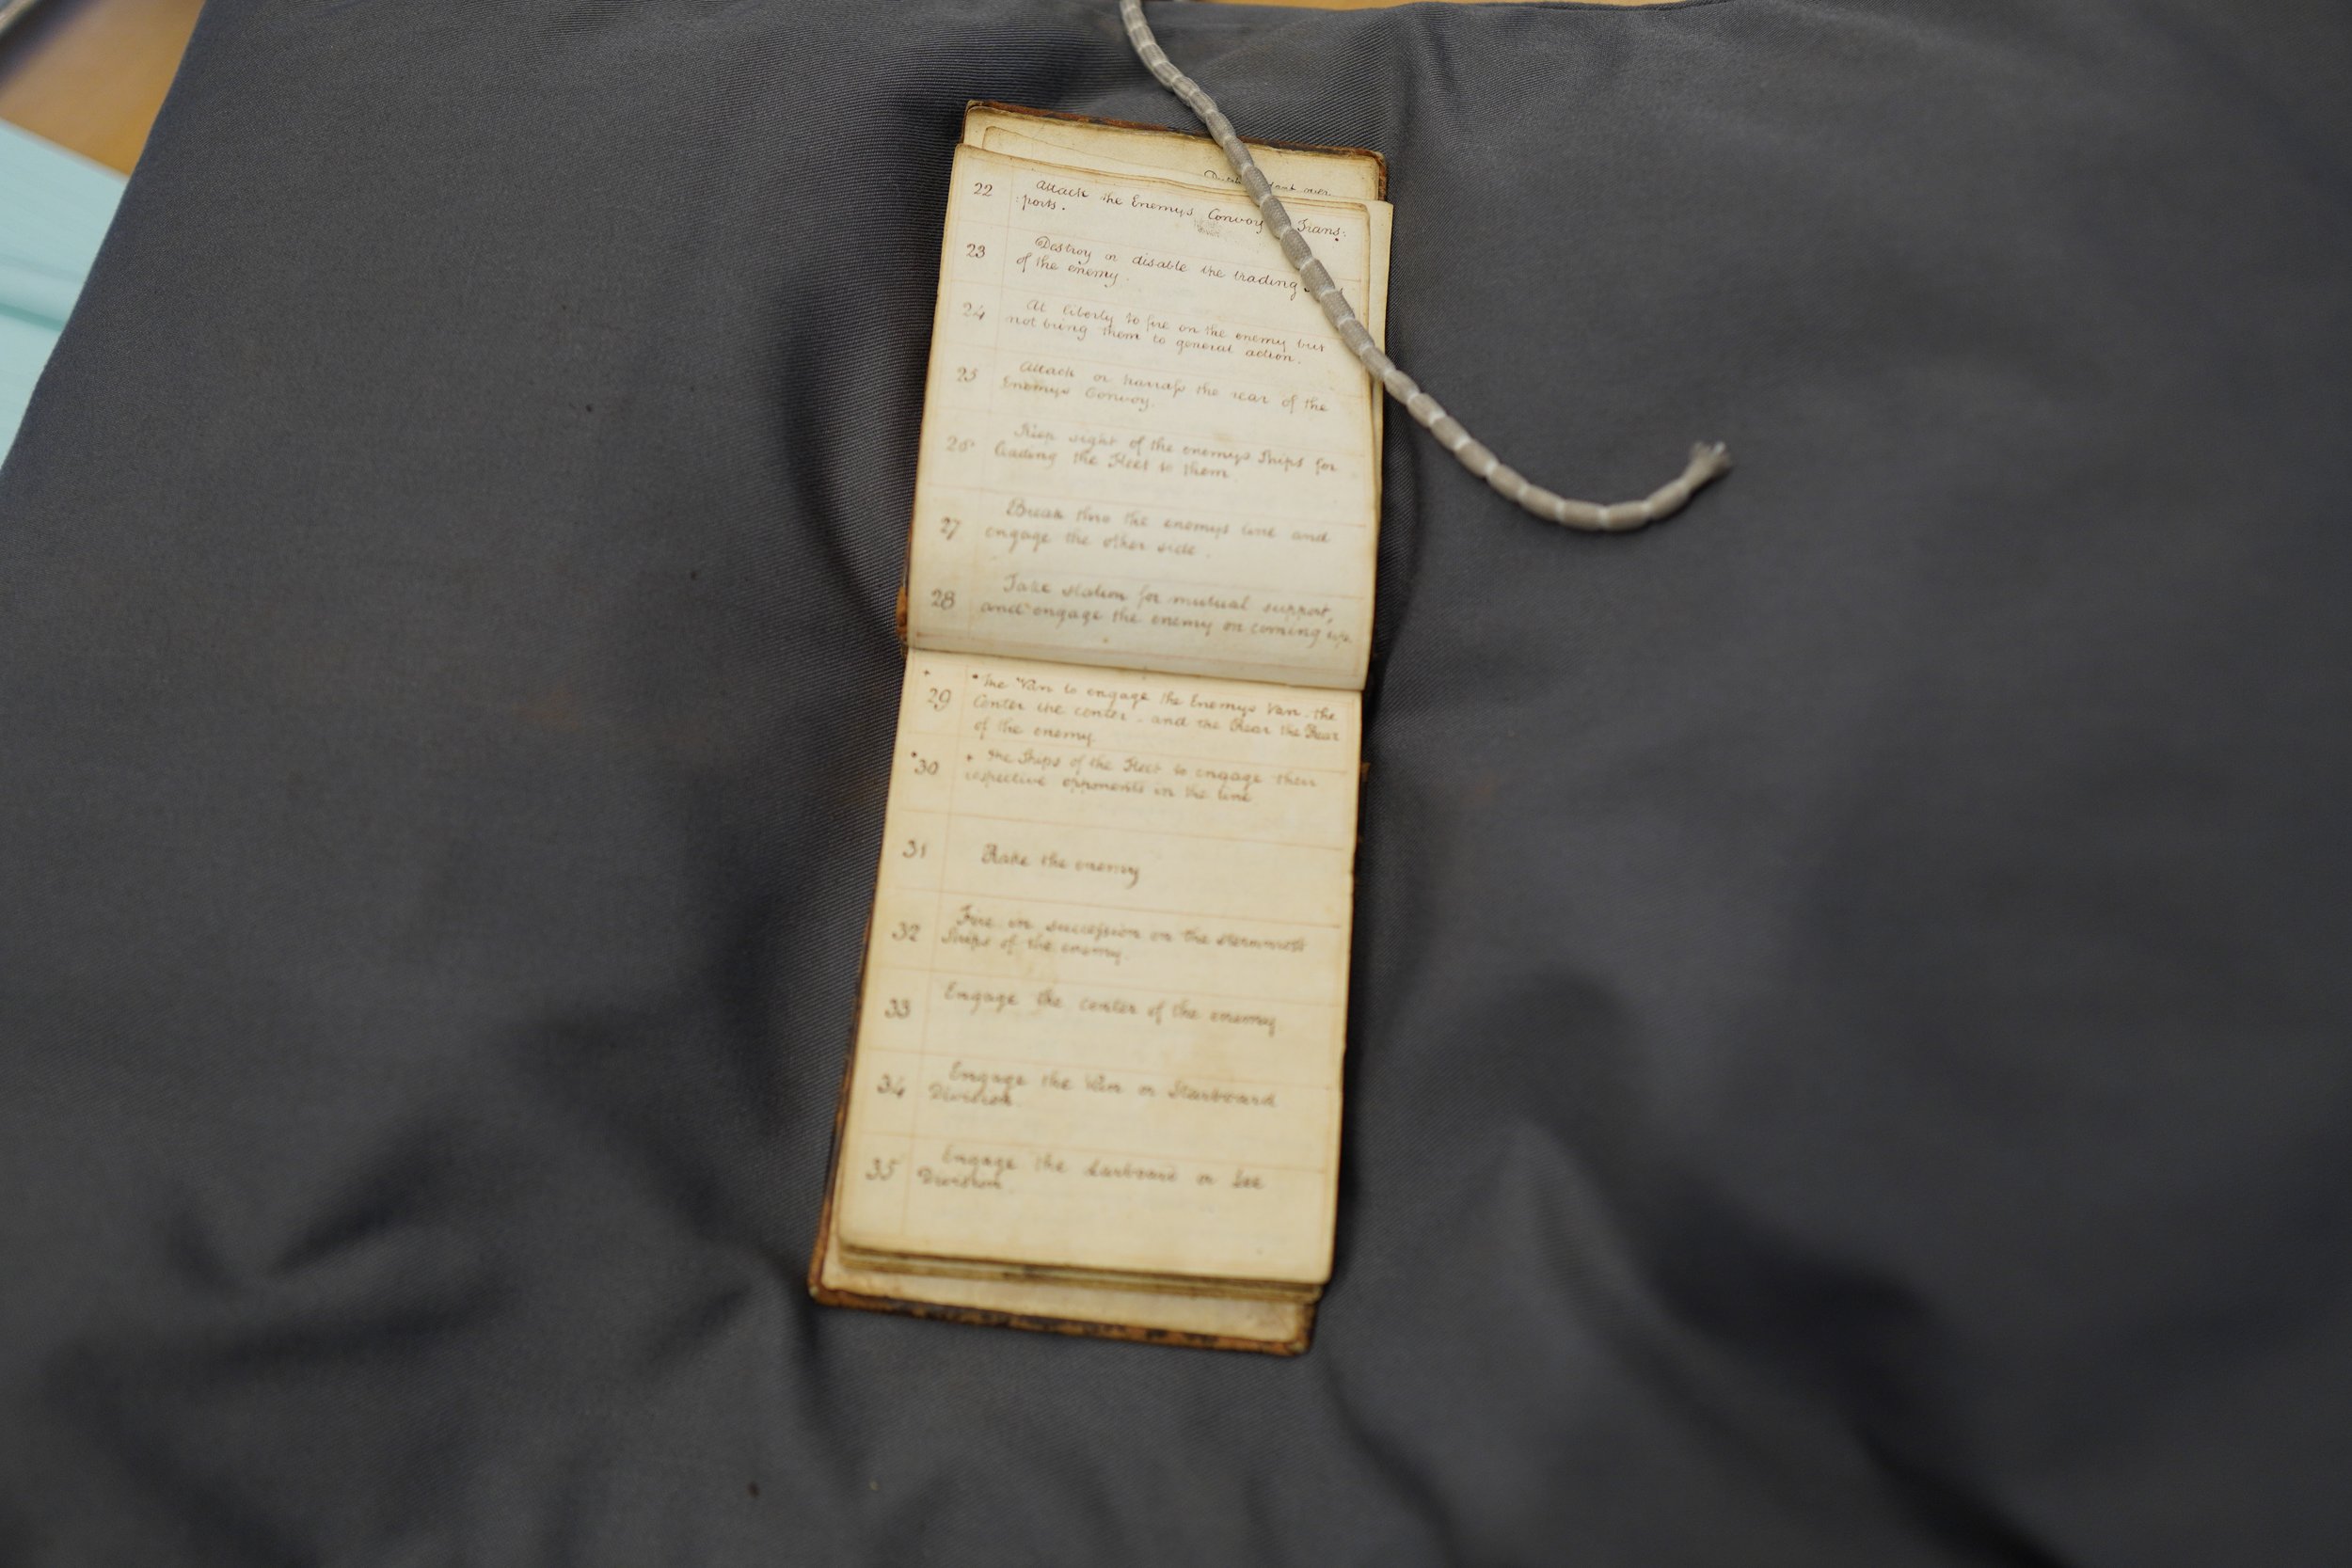 over.
22 Attack the Enemys Convoy Trans:
:ports.
23 Destroy or disable the trading
of the enemy.
24 At liberty to fire on the enemy but
not bring them to general action.
25 Attack or harrass the rear of the
Enemys Convoy.
26 Keep sight of the enemys Ships for
leading the Fleet to them.
27 Break thro the enemys line and
engage the other side.
28 Take station for mutual support,
and engage the enemy on coming up.
29 The Van to engage the Enemys Van. the
Center the center. and the Rear the Rear
of the enemy.
30 The Ships of the Fleet to engage their
respective opponents in the line
31 Rake the enemy
32 Fire in succession on the sternmost
Ships of the enemy.
33 Engage the center of the enemy
34 Engage the Van or Starboard
Division.
35 Engage the Larboard or Lee
Division.